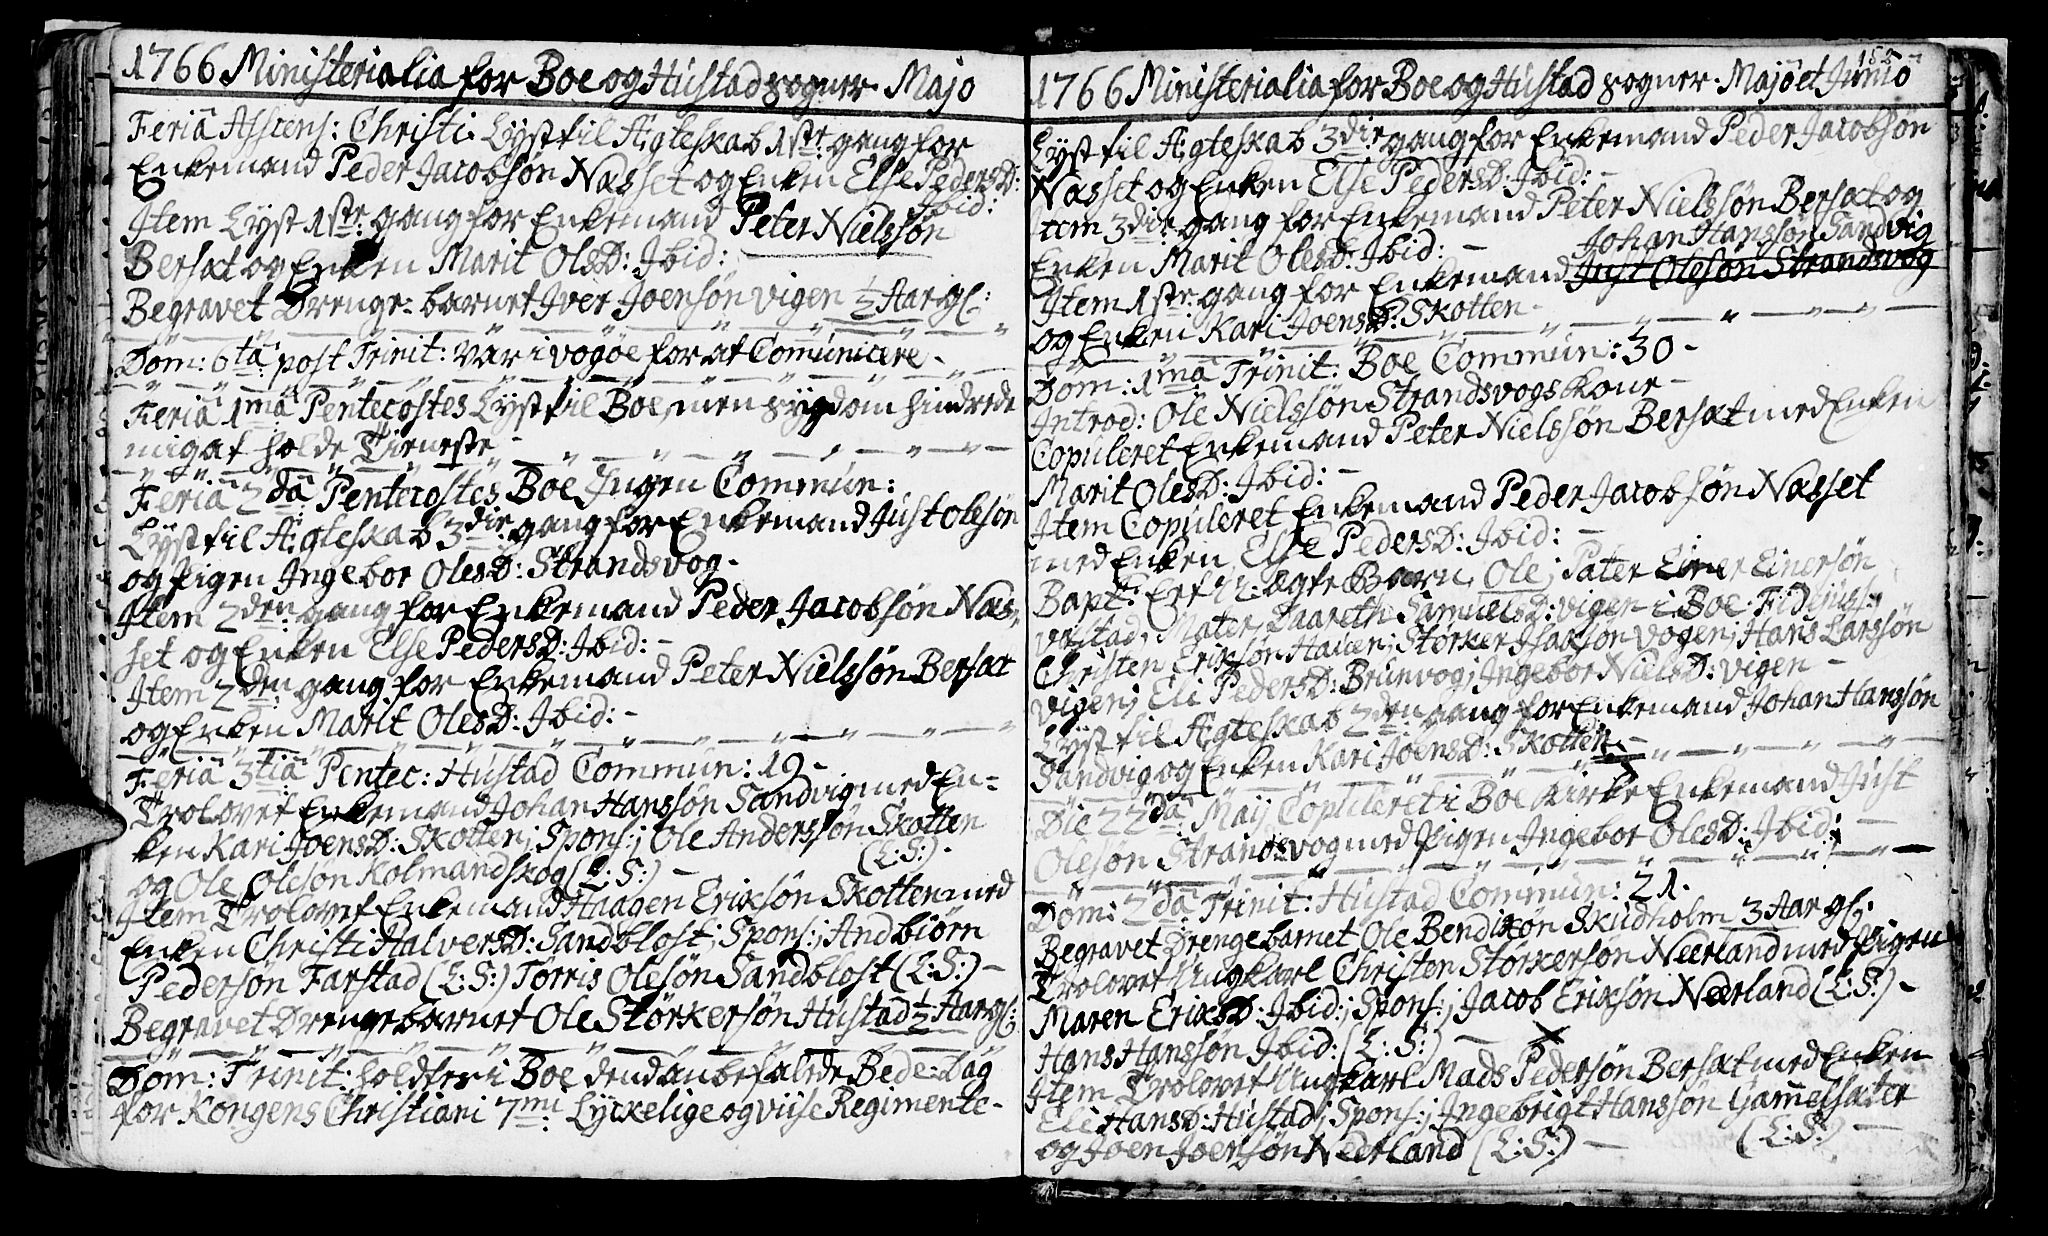 1766 Ministerialia for Boe og Hustad sogner. Majo
Feria Ascens: Christi. Lyst til Ægteskab 1ste gang for
Enkemand Peder Jacobsøn Næsset og Enken Else PedersD:
Ibid:
Item Lyst 1ste gang for Enkemand Peter Nielssøn
Bersæt og Enken Marit OlsD: Ibid:
Begravet Drenge-barnet Iver Joensøn vigen ½ Aar gl:
Dom: 6ta post Trinit: var i vogøe for at Comunicere
Feria 1ma Pentecostes Lyst til Boe, men sygdom hindrede
mig at holde Tieneste
Feria 2da Pentecostes Boe Ingen Commun:
Lyst til Ægteskab 3die gang for Enkemand Just Olesøn
og Pigen Ingebor OlesD: Strandsvog.
Item 2den gang for Enkemand Peder Jacobsøn Næs,
set og Enken Else PedersD: Ibid: -
Item 2den gang for Enkemand Peter Nielssøn Bersæt
og Enken Marit OlesD: Ibid: -
Feria 3tia Pentec: Hustad Commun: 19 -
Trolovet Enkemand Johan Hanssøn Sandvig med En-
ken Kari JoensD: Skotten; Spons:; Ole Anderssøn Skotten
(L:S:)
og Ole Oleson Kolmandskog (L:S:) -
Item Trolovet Enkemand Haagen Eriksøn Skotten med
Enken Christi HalversD: Sandblost; Spons:; Andbiørn
Pedersøn Farstad (L:S:) Torris Olesøn Sandblost (L:S:) -
Begravet Drengebarnet Ole Størkersøn Hustad ½ Aar gl:
Dom: Trinit: holdtes i Boe dend anbefalede Bede-Dag
for Kongens Christiani 7mi Lyckelige og viise Regimente -
152
1766 Ministerialia for Boe og Hustad sogner. Majo et Junio
Lyst til Ægteskab 3die gang for Enkemand Peder Jacobsøn
Næsset og Enken Else PedersD: Ibid: -
Item 3die gang for Enkemand Peter Nielssøn Bersæt og
Enken Marit OlesD: Ibid: -
Johan Hanssøn Sandvig
Item 1ste gang for Enkemand Just Olesøn Strandsvog
og Enken Kari JoensD: Skotten -
Dom: 1ma Trinit: Boe Commun: 30 -
Introd: Ole Nielssøn Strandsvogs kone -
Copuleret Enkemand Peter Nielssøn Bersæt med Enken
Marit OlesD: Ibid: -
Item Copuleret Enkemand Peder Jacobsøn Næsset
med Enken Else PedersD: Ibid: -
Bapt: Et ægte Barn, Ole; Pater Einer Einersøn
vastad, Mater Daareth SamuelsD: vigen i Boe Fidejuss:
Christen Eriksøn Hauen; Størker Isaksøn vogen; Hans Larssøn
vigen; Eli PedersD: Brunvog; Ingebor NielsD: vigen -
Lyst til Ægteskab 2den gang for Enkemand Johan Hanssøn
Sandvig og Enken Kari JoensD: Skotten -
Die 22da Maij Copuleret i Boe Kirke Enkemand Just
Olesøn Strandsvog med Pigen Ingebor OlesD: Ibid: -
Dom: 2da Trinit: Hustad Commun: 21.
Begravet Drengebarnet Ole Bendixon Skudholm 3 Aar gl:
Trolovet Ungkarl Christen Størkersøn Neerland med Pigen
Maren EriksD: Ibid:; Spons:; Jacob Eriksøn Nærland (L:S:) -
Hans Hanssøn Ibid: (L:S:) -
Item Trolovet Ungkarl Mads Pedersøn Bersæt med Enken
Eli HansD: Hustad; Spons:; Ingebrigt Hanssøn Gammelsæter
(L:S:) -
og Joen Joensøn Neerland (L:S:) -